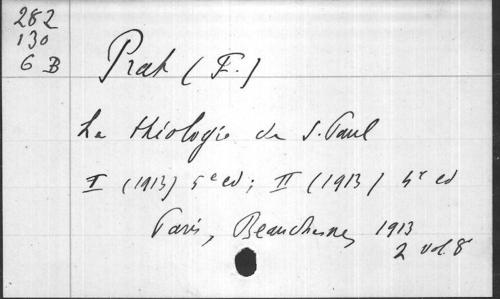 282
130
6 B
Prat (F.)
La théologie de S. Paul
I (1913) 5e ed; II (1913) 4e ed
Paris, Beauchesne, 1913
2 vol. 8°